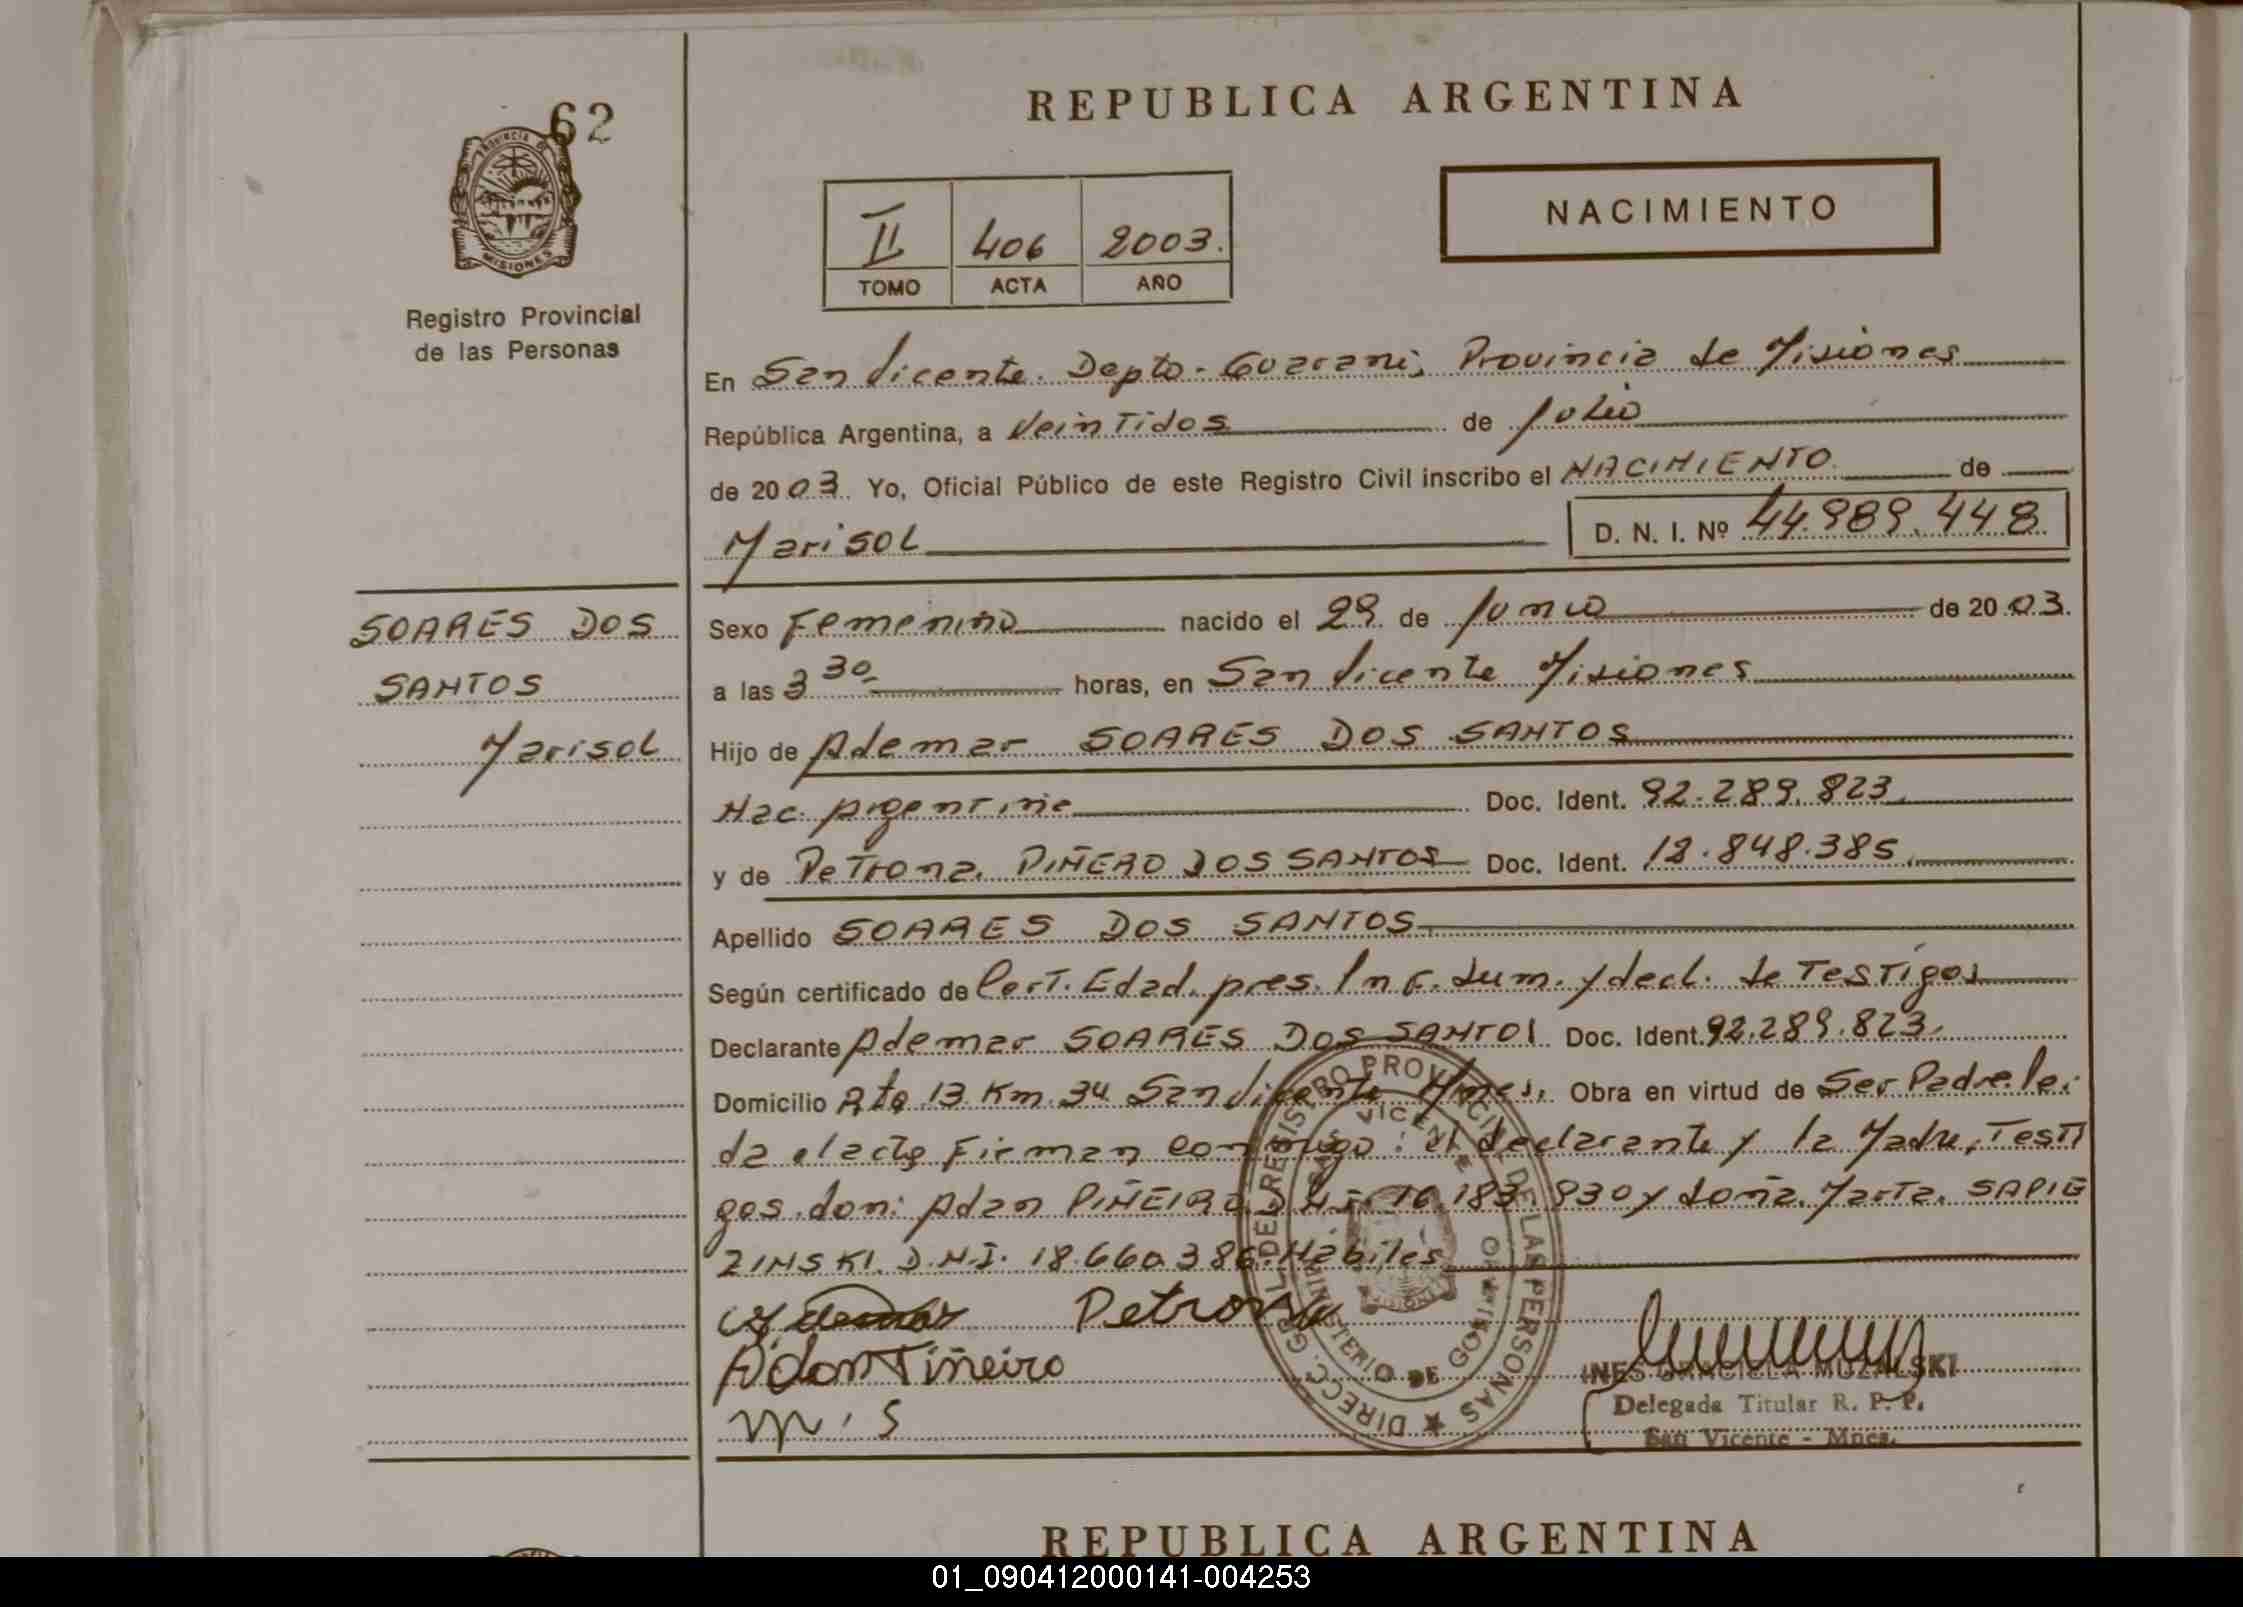 62
Provincia de
MISIONES
Registro Provincial
de las Personas
REPUBLICA ARGENTINA
II 406 2003.
TOMO ACTA AÑO
NACIMIENTO
En San Vicente. Depto. Guarani, Provincia de Misiones
República Argentina, a Veintidos de Julio
de 2003. Yo, Oficial Público de este Registro Civil inscribo el NACIMIENTO. de
Marisol D. N. I. Nº 44.989.448.
SOARES DOS
SANTOS
Marisol
Sexo Femenino nacido el 29. de Junio de 2003.
a las 3 30 horas, en San Vicente Misiones
Hijo de Ademar SOARES DOS SANTOS
Nac. Argentina Doc. Ident. 92.289.823.
y de Petrona. PIÑERO DOS SANTOS Doc. Ident. 18.848.385.
Apellido SOARES DOS SANTOS
Según certificado de Cert. Edad. pres. Inf. Sum. y decl. de Testigos
Declarante Ademar SOARES DOS SANTOS Doc. Ident. 92.289.823.
Domicilio Rta 13 Km. 34 San Vicente Mnes. Obra en virtud de Ser Padre. Lei
da el acta Firman conmigo: el declarante y la Madre, Testi
gos. don: Adan PIÑEIRO. D.N.I. 16.183.930 y doña. Marta. SAPIE
ZINSKI. D.N.I. 18.660.386. Habiles
Petrona
Adan Piñeiro
M. S
DIRECC. GRAL. DE REGISTRO PROVINCIAL DE LAS PERSONAS
SAN VICENTE
MINISTERIO DE GOBIERNO
MISIONES
INES GRACIELA MUZALSKI
Delegada Titular R. P. P.
San Vicente - Mnes.
REPUBLICA ARGENTINA
01_090412000141-004253